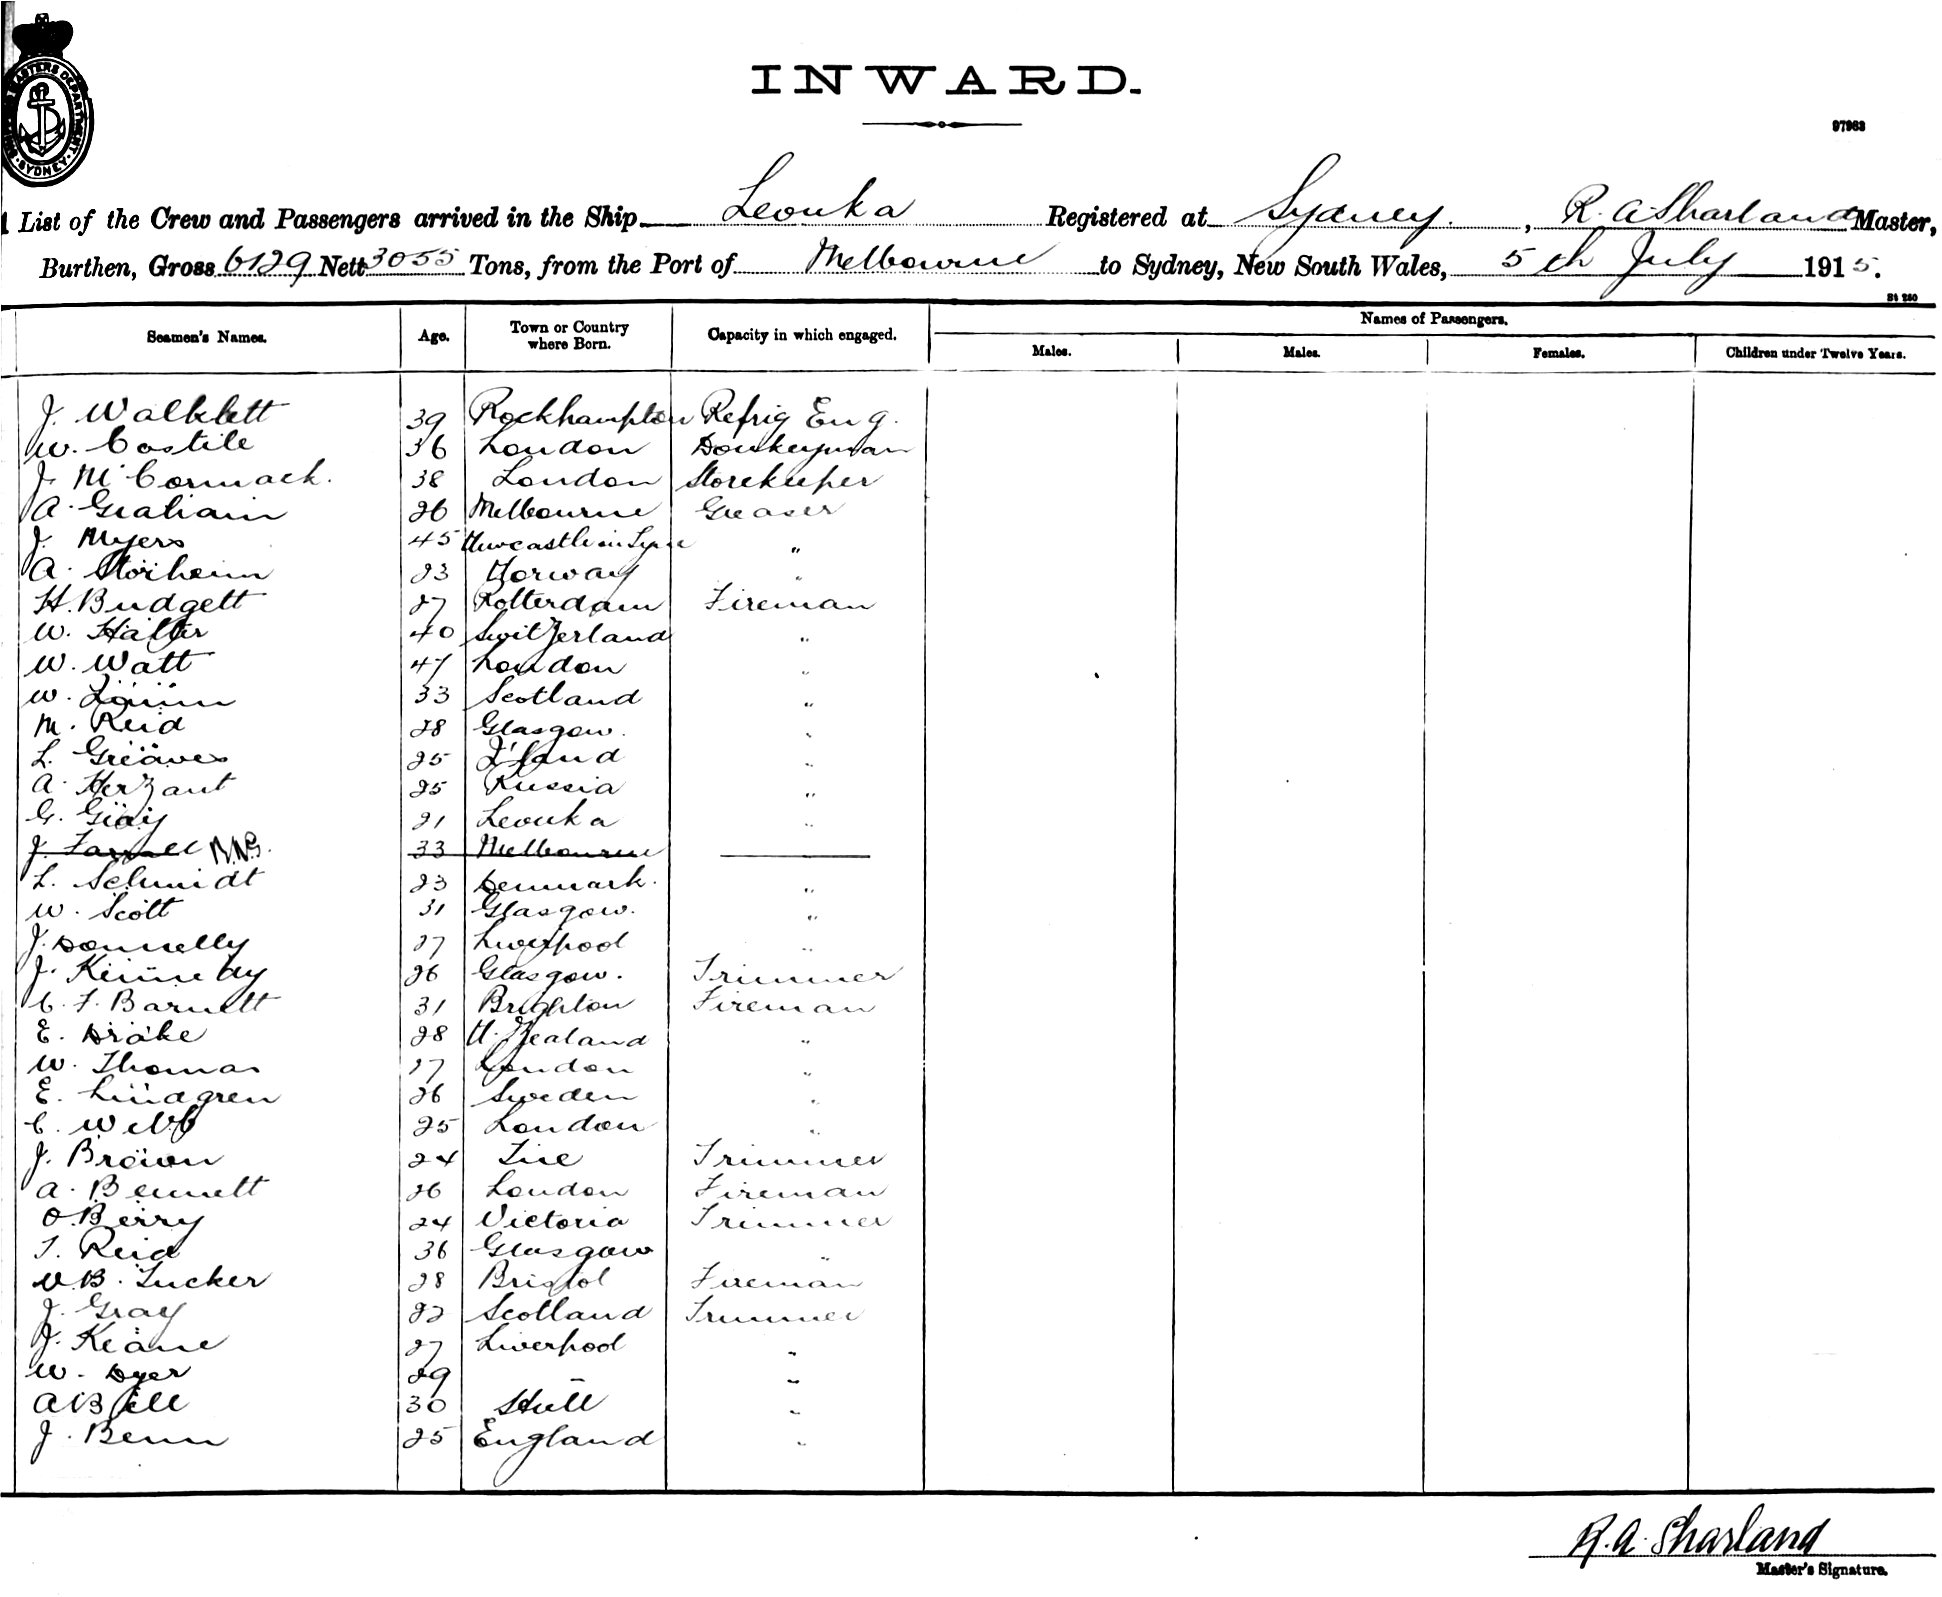 SHIPPING MASTERS DEPARTMENT · SYDNEY ·
INWARD.
97963
List of the Crew and Passengers arrived in the Ship Levuka Registered at Sydney. , R. A. Sharland Master,
Burthen, Gross 6129 Nett 3055 Tons, from the Port of Melbourne to Sydney, New South Wales, 5th July 1915.
St 250
Seamen's Names. Age. Town or Country where Born. Capacity in which engaged. Names of Passengers.
Males. Males. Females. Children under Twelve Years.
J. Walklett 39 Rockhampton Refrig Eng.
W. Costile 36 London Donkeyman
J. McCormack. 38 London Storekeeper
A. Graham 26 Melbourne Greaser
J. Myers 45 Newcastle on Tyne "
A. Storheim 23 Norway "
H. Budgett 27 Rotterdam Fireman
W. Halter 40 Switzerland "
W. Watt 47 London "
W. Quinn 33 Scotland "
M. Reid 28 Glasgow. "
L. Greaves 25 I'land "
A. Herzant 25 Russia "
G. Gray 21 Levuka "
J. Farrell 33 Melbourne
L. Schmidt 23 Denmark. "
W. Scott 31 Glasgow. "
J. Donnelly 27 Liverpool "
J. 26 Glasgow. Trimmer
C. F. Barnett 31 Brighton Fireman
E. Drake 28 N. Zealand "
W. Thomas 27 London "
E. Lindgren 26 Sweden "
C. Webb 25 London "
J. Brown 24 Trimmer
A. Bennett 26 London Fireman
O. Berry 24 Victoria Trimmer
T. Reid 36 Glasgow "
V. B. Tucker 28 Bristol Fireman
J. Gray 22 Scotland Trimmer
J. Keane 27 Liverpool "
W. Dyer 29 " "
A Bell 30 Hull "
J. Benn 25 England "
R. A. Sharland
Master's Signature.